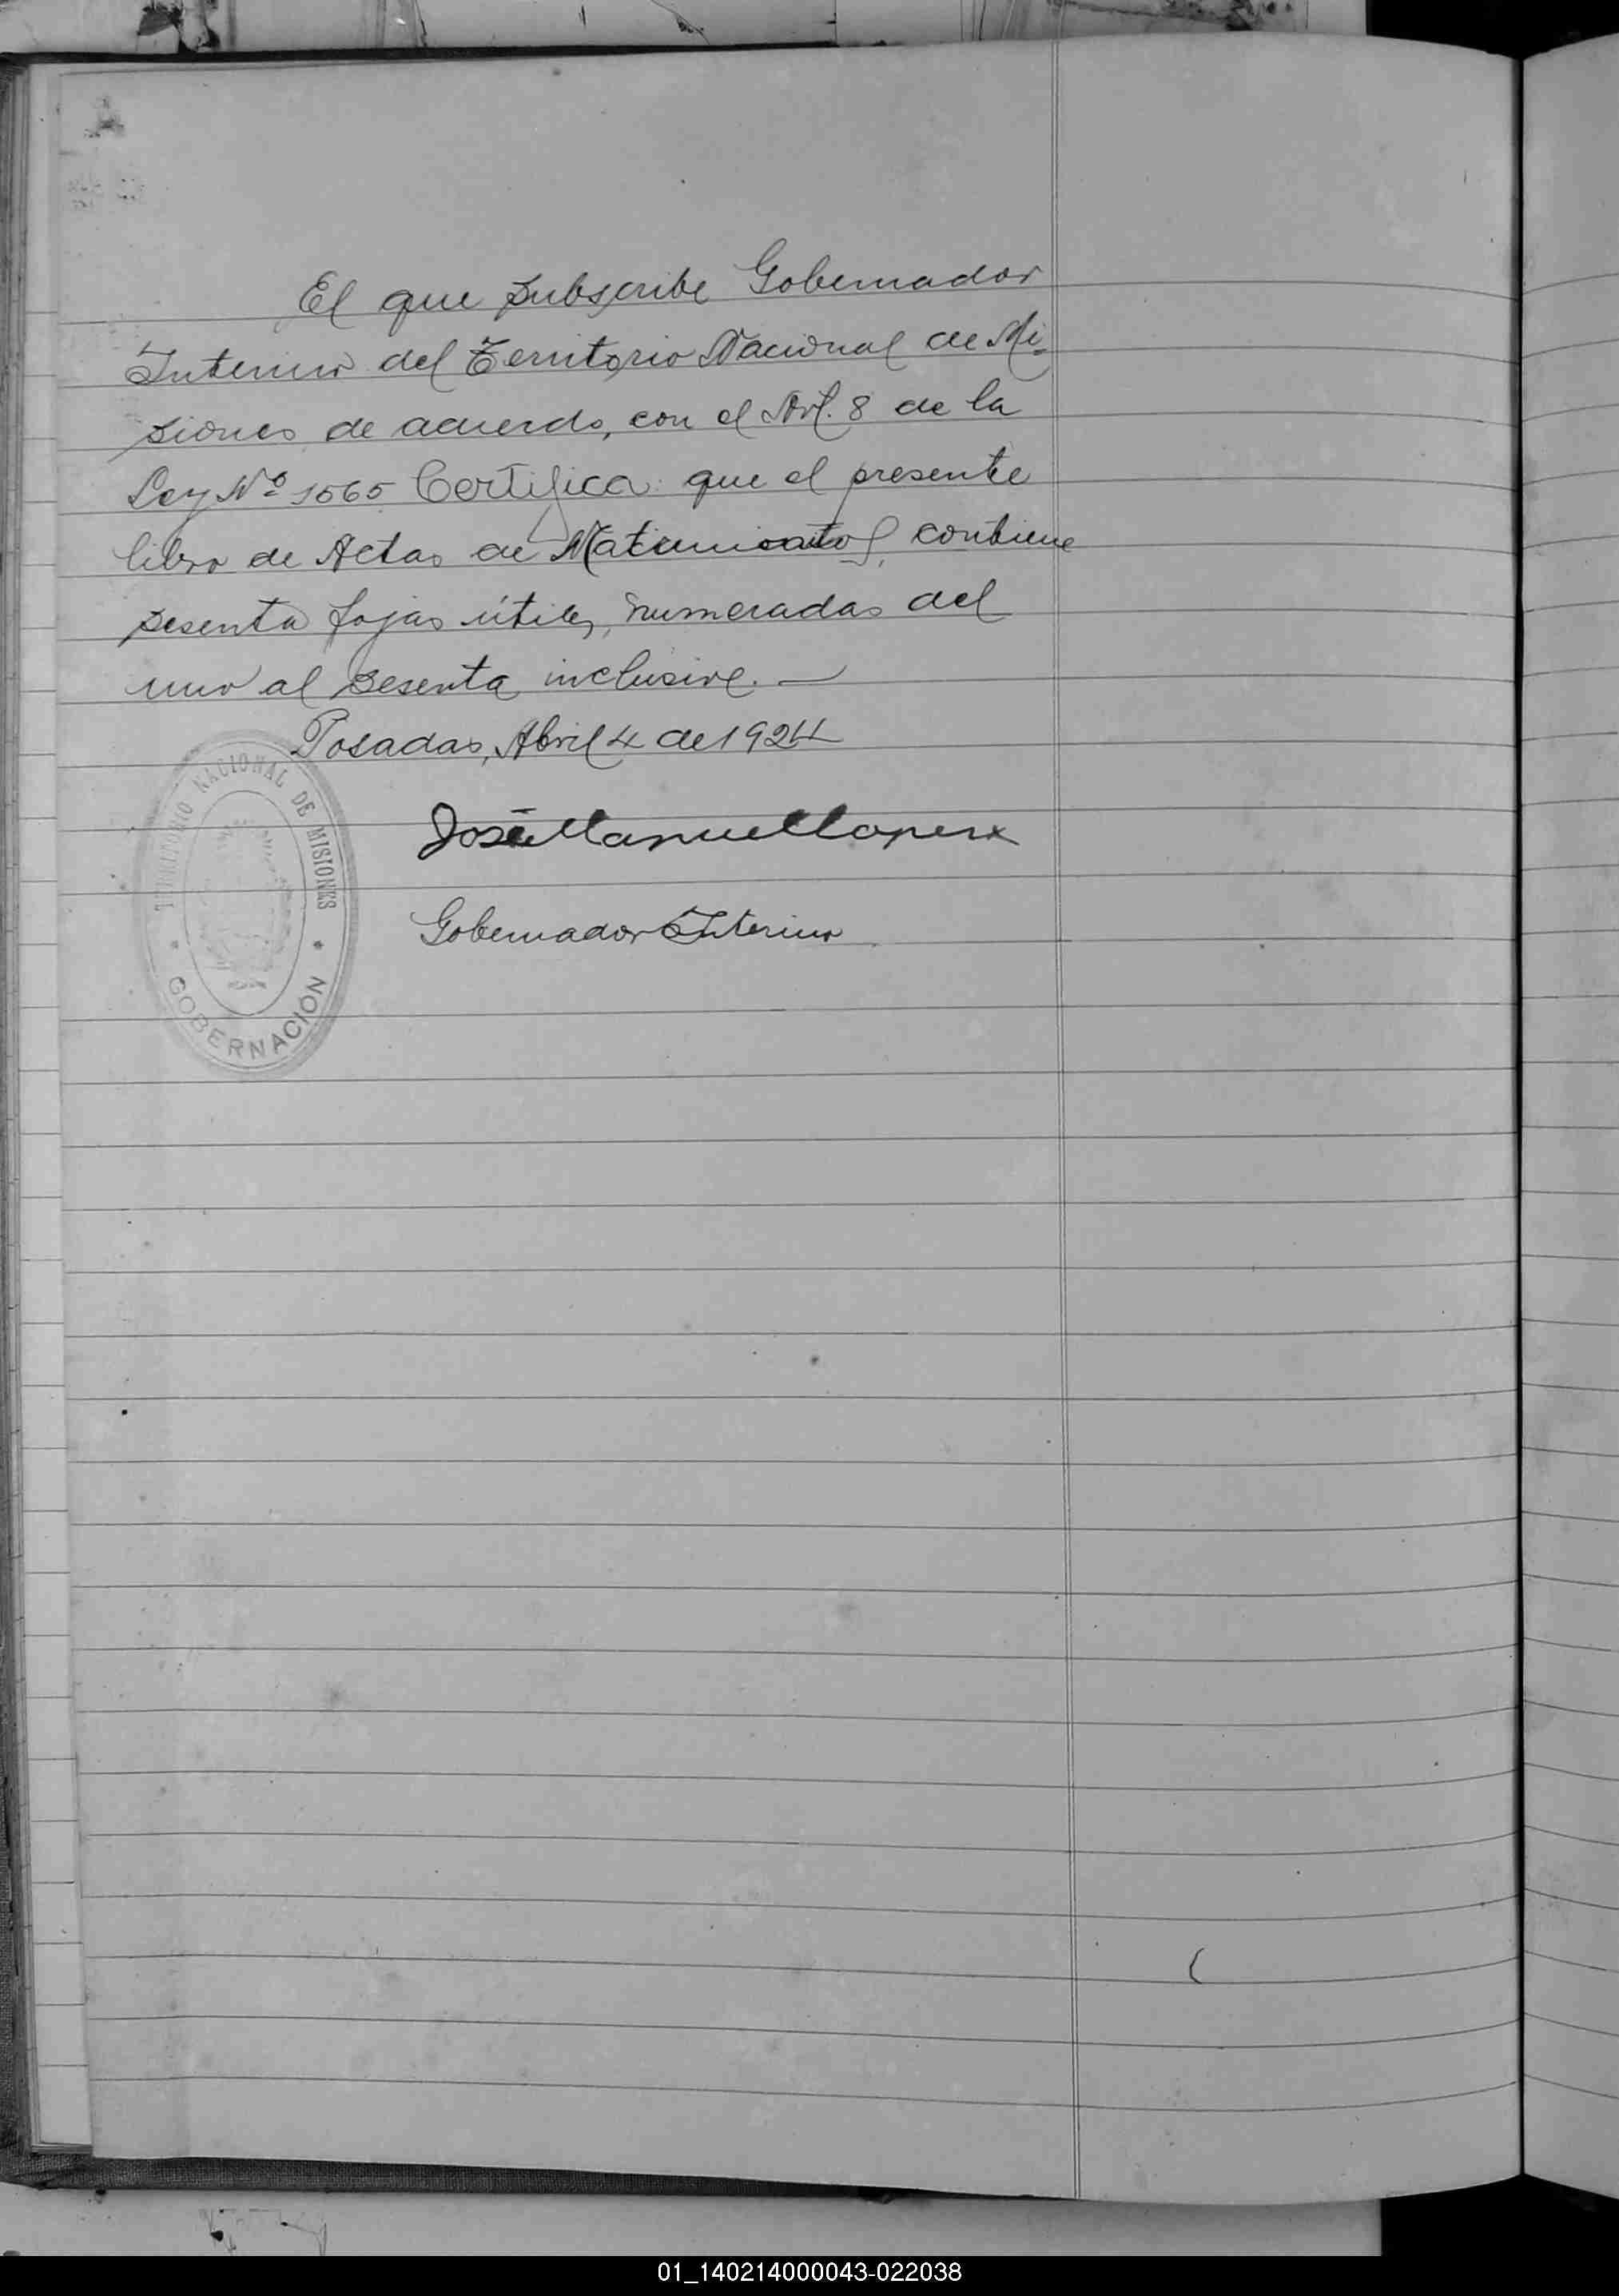 El que subscribe Gobernador
Interino del Territorio Nacional de Mi-
siones de acuerdo, con el Art. 8 de la
Ley Nº 1565 Certifica: que el presente
libro de Actas de Matrimonios, contiene
sesenta fojas útiles, numeradas del
uno al sesenta inclusive. —
Posadas, Abril 4 de 1924
José Manuel
Gobernador Interino
TERRITORIO NACIONAL DE MISIONES
* GOBERNACIÓN *
01_140214000043-022038